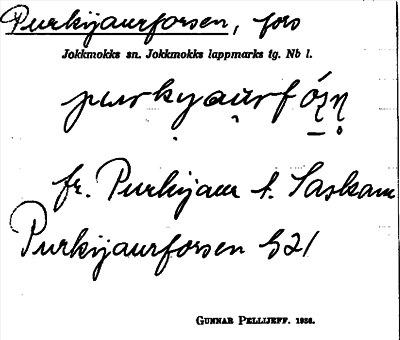 Purkijaurforsen, fors
Jokkmokks sn. Jokkmokks lappmarks tg. Nb l.
purkyau̯rfȯ́ʐŋ̥
fr. Purkijaur t. Saskam
Purkijaurforsen G21
GUNNAR PELLIJEFF. 1936.